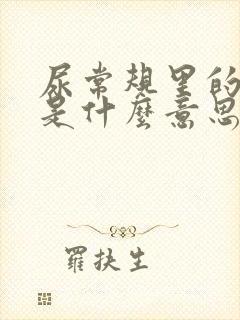 尿常规里的
是什麼意思
羅扶生